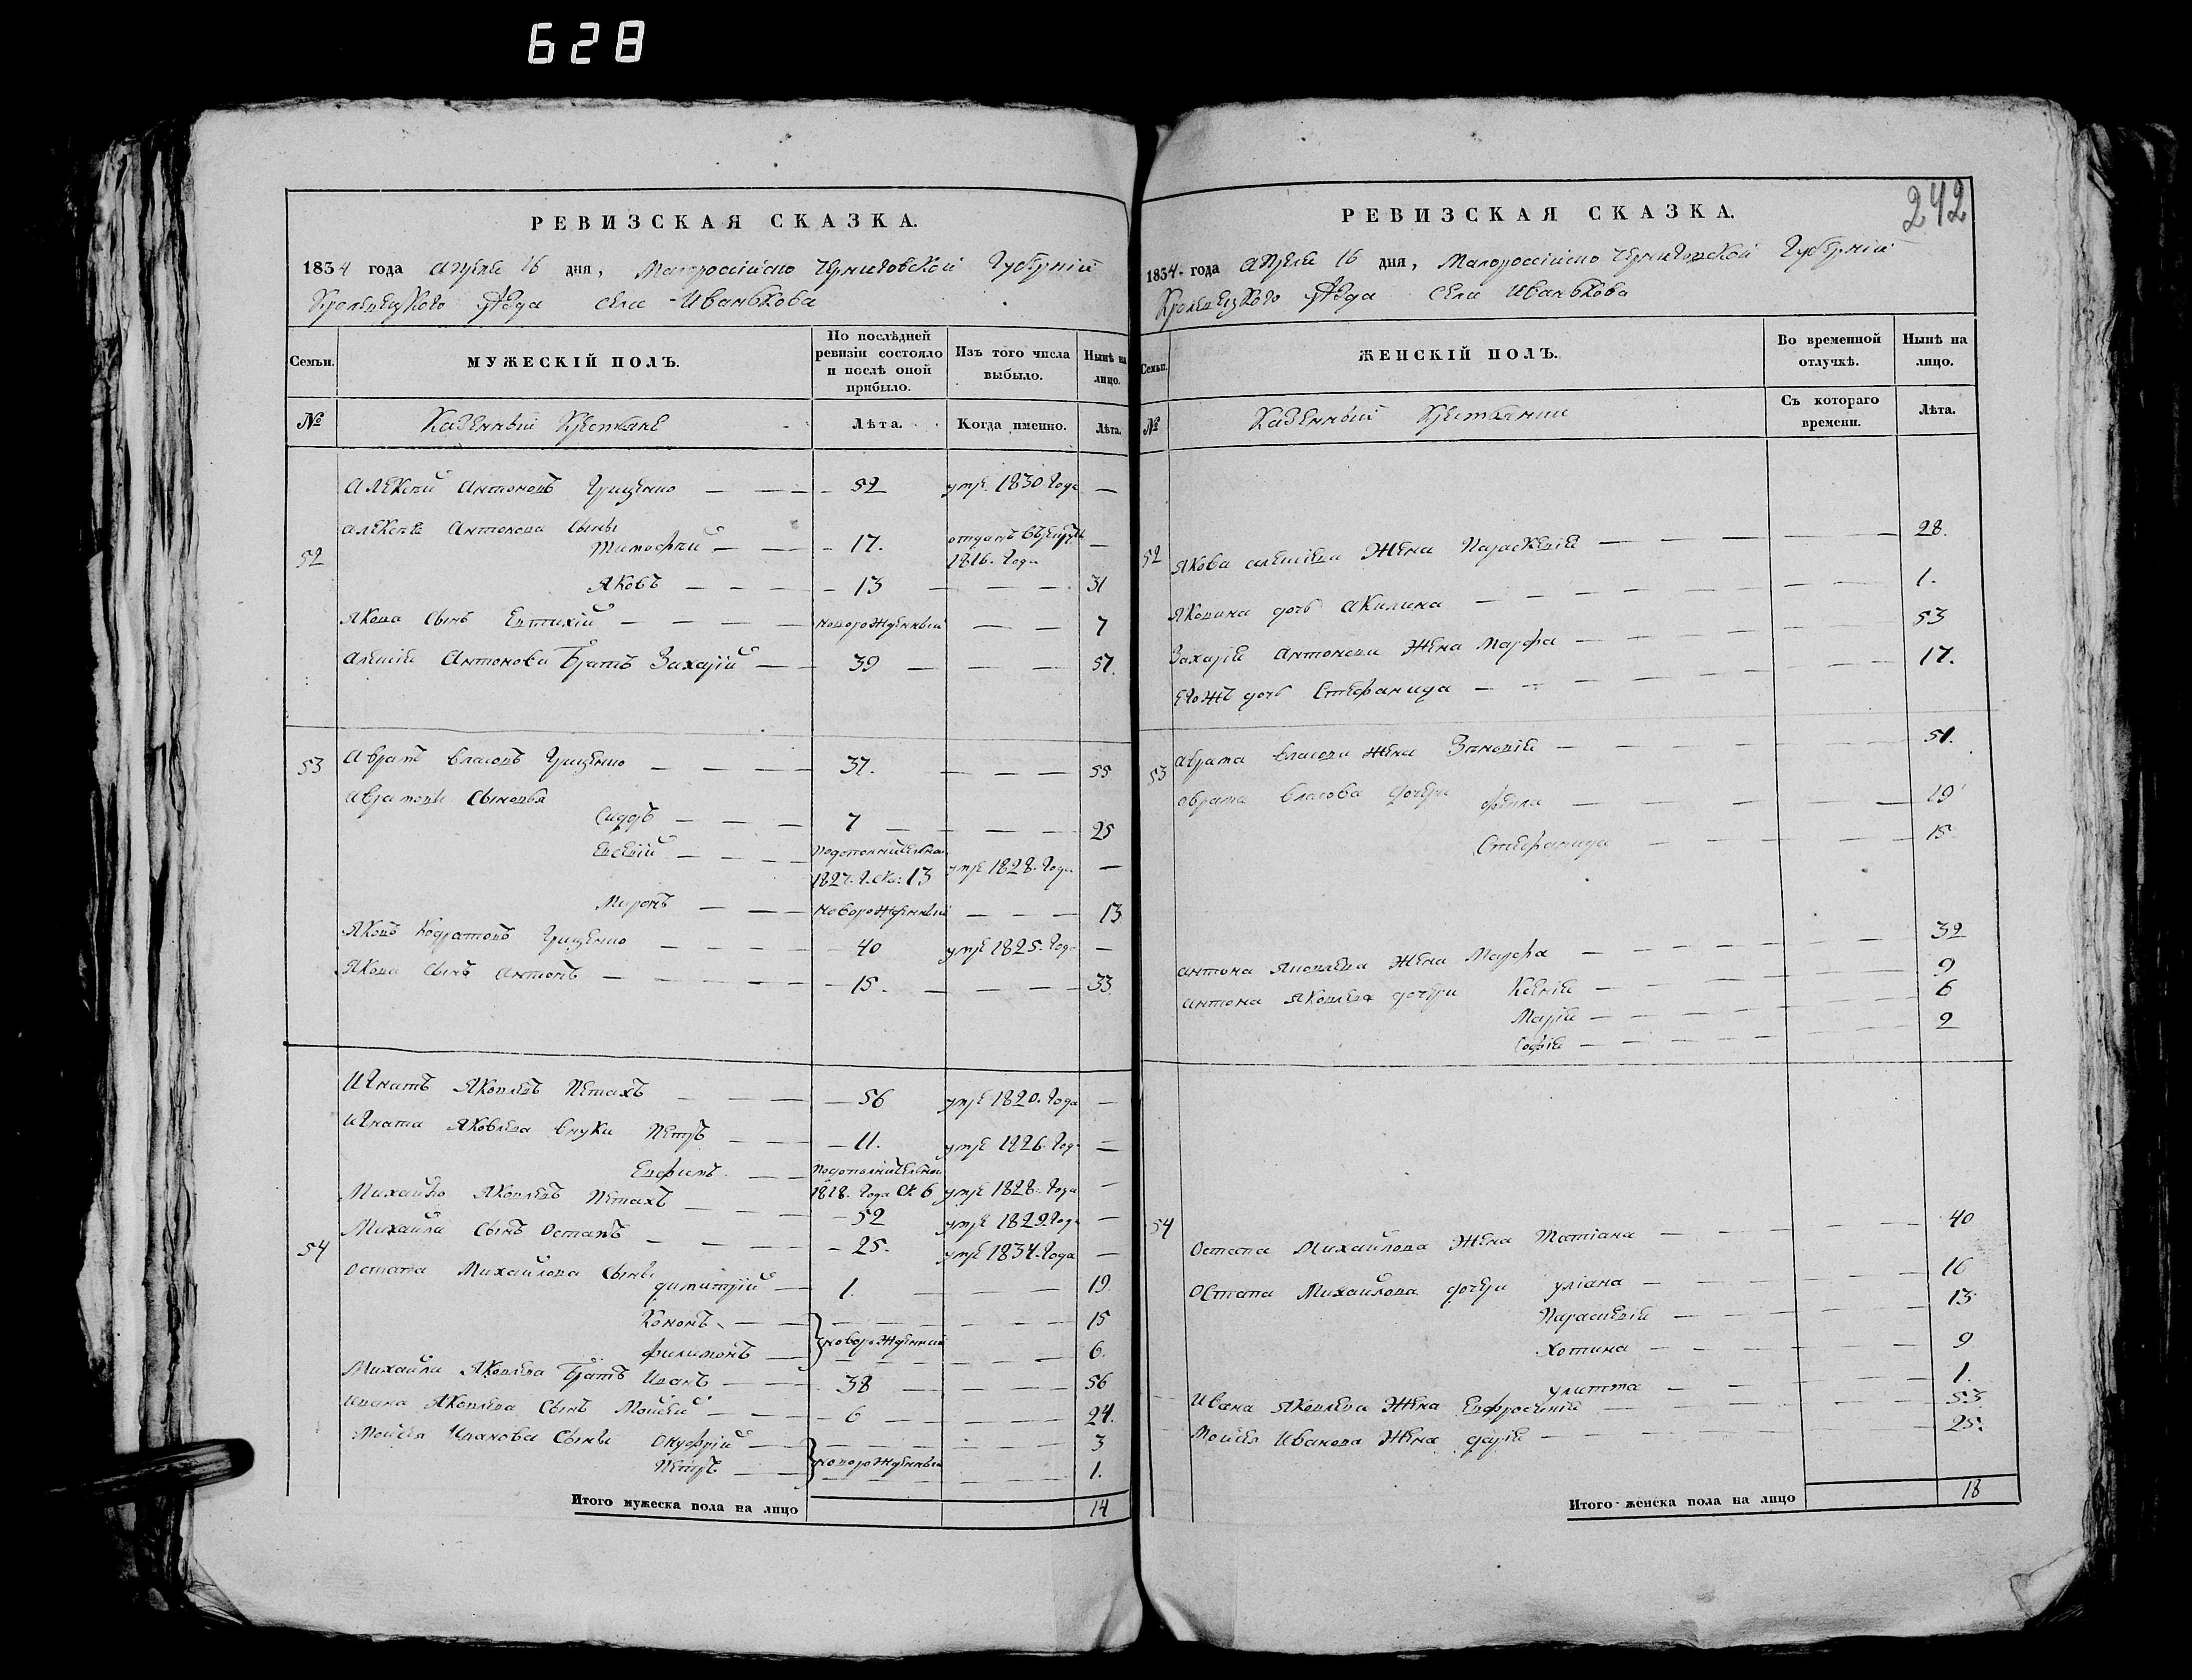 628
РЕВИЗСКАЯ СКАЗКА.
1834 года апреля 16 дня, Малороссійско Черниговской Губерніи
Кролевецкого уезда села Иванькова
Семьи. МУЖЕСКІЙ ПОЛЪ. По послѣдней ревизіи состояло и послѣ оной прибыло. Изъ того числа выбыло. Нынѣ на лицо.
№ Казенныи Крестяне Лѣта. Когда именно. Лѣта.
Алексѣй Антоновъ Грищенко — 52 умре 1830 Года —
52 Алексѣя Антонова Сыны
Тимофѣй — 17. отданъ въ рекруты 1816. Года —
Яковъ — 13 — 31
Якова Сынъ Евтихій — новорожденный — 7
Алексія Антонова Братъ Захарій — 39 — 57.
53 Аврамъ Власовъ Грищенко — 37. — 55
Аврамовы Сыновья
Сидоръ — 7 — 25
Евсевій — подополнительной 1827. г. ска: 13 умре 1828. Года —
Миронъ — новорожденный — 13
Яковъ Кодратовъ Грищенко — 40 умре 1825. Года —
Якова Сынъ Антонъ — 15. — 33.
Игнатъ Яковлевъ Петахъ — 56 умре 1820. Года —
Игната Яковлева внуки Петръ — 11. умре 1826. Года —
Евфимъ — подополнительной 1818. Года Ск. 6 умре 1828. Года —
Михайло Яковлевъ Петахъ — 52 умре 1829. Года —
54 Михайла Сынъ Остапъ — 25. умре 1834. Года —
Остапа Михайлова Сыны
Димитрій — 1. — 19.
Кононъ — 15
новорожденный
Филимонъ — 6.
Михайла Яковлева Братъ Иванъ — 38 — 56
Ивана Яковлева Сынъ Мойсей — 6 — 24.
Мойсея Иванова Сыны Онуфрій — 3
новорожденный
Петръ — 1.
Итого мужеска пола на лицо 14
242
РЕВИЗСКАЯ СКАЗКА.
1834 года апреля 16 дня, Малороссійско Черниговской Губерніи
Кролевецкого уезда села Иванькова
Семьи. ЖЕНСКІЙ ПОЛЪ. Во временной отлучкѣ. Нынѣ на лицо.
№ Казенныи Крестянки Съ котораго времени. Лѣта.
52 Якова Алексіева Жена Параскевія — 28.
Яковина дочь Акилина — 1.
Захарія Антонова Жена Марфа — 53
Егожъ дочь Стефанида — 17.
53 Аврама Власова Жена Зѣновія — 51.
Аврама Власова дочери — 19
Стефанида — 15
Антона Яковлева Жена Марфа — 32
Антона Яковлева дочери Ксенія — 9
Марія — 6
Софія — 2
54 Остапа Михайлова Жена Татіана — 40
Остапа Михайлова дочери Уліана — 16
Параскевія — 13
Хотина — 9
Улитта — 1.
Ивана Яковлева Жена Евфросинія — 53
Мойсея Иванова Жена Дарія — 25.
Итого женска пола на лицо 18